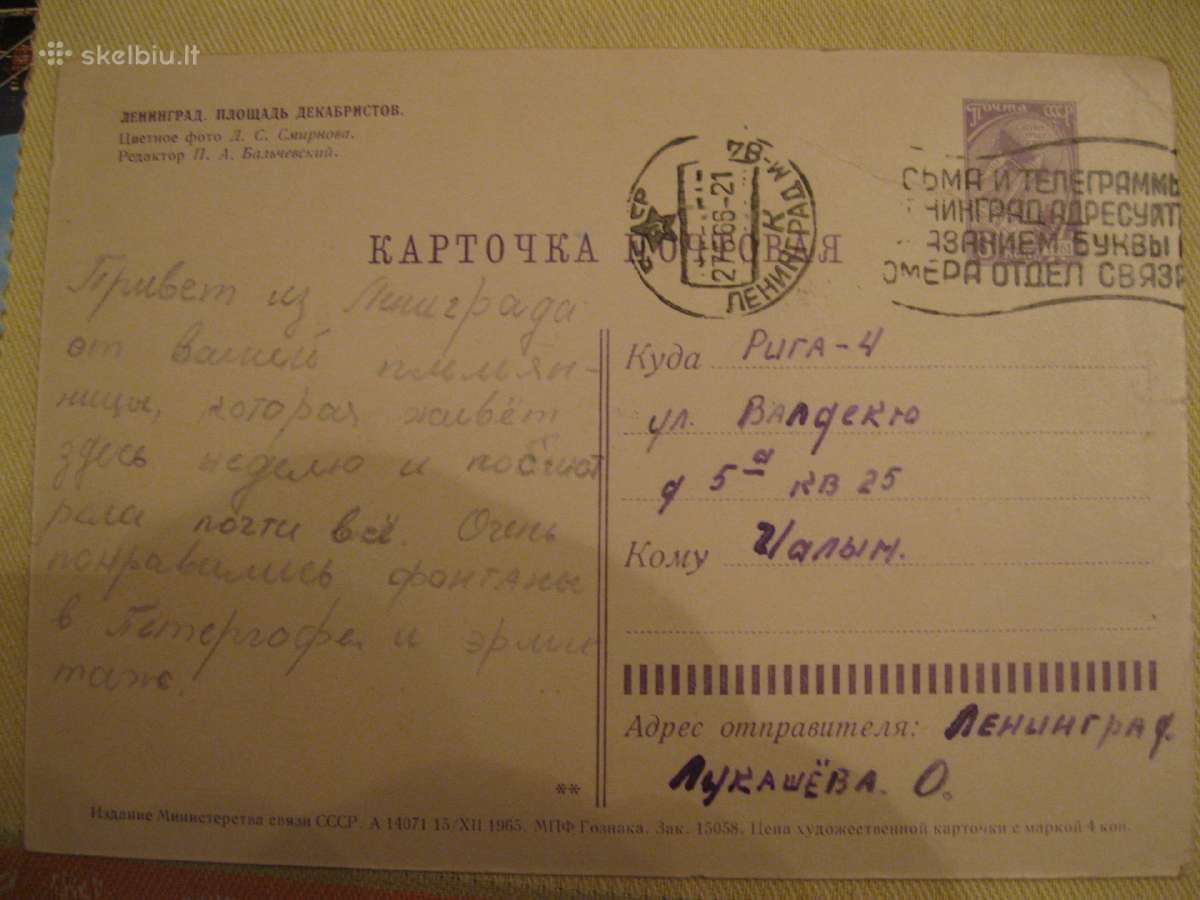 skelbiu.lt
ЛЕНИНГРАД. ПЛОЩАДЬ ДЕКАБРИСТОВ.
Цветное фото Л. С. Смирнова.
Редактор П. А. Бальчевский.
Почта СССР
СССР
27 66-21
ЛЕНИНГРАД М-82
К
СЬМА И ТЕЛЕГРАММЫ
НИНГРАД АДРЕСУЙТ
АЗАНИЕМ БУКВЫ
ОМЕРА ОТДЕЛ СВЯЗИ
КАРТОЧКА ПОЧТОВАЯ
Привет из Ленинграда
от вашей племян-
ницы, которая живёт
здесь неделю и посмот
рела почти всё. Очень
понравились фонтаны
в Петергофе и эрми
таж.
Куда Рига-4
ул. Валдекю
д 5а кв 25
Кому
Адрес отправителя: Ленинград
Лукашёва. О.
**
Издание Министерства связи СССР. А 14071 15/XII 1965. МПФ Гознака. Зак. 15058. Цена художественной карточки с маркой 4 коп.